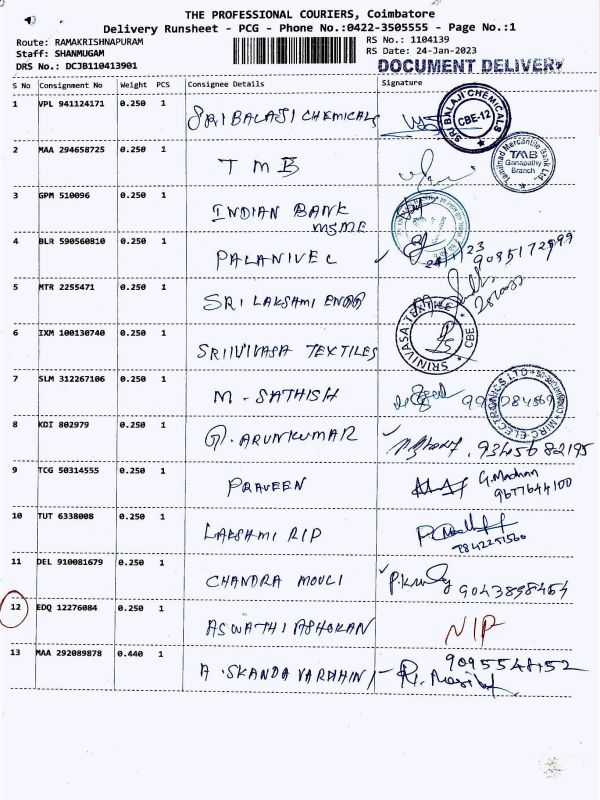 THE PROFESSIONAL COURIERS, Coimbatore
Delivery Runsheet - PCG - Phone No.:0422-3505555 - Page No.:1
Route: RAMAKRISHNAPURAM
RS No.: 1104139
Staff: SHANMUGAM
RS Date: 24-Jan-2023
DRS No.: DCJB110413901
DOCUMENT DELIVERY
S No Consignment No Weight PCS Consignee Details Signature
1 VPL 941124171 0.250 1 SRI BALAJI CHEMICALS
SRI BALAJI CHEMICALS CBE-12
2 MAA 294658725 0.250 1 TMB
Tamilnad Mercantile Bank Ltd. TMB Ganapathy Branch
3 GPM 510096 0.250 1 INDIAN BANK
MSME
4 BLR 590560810 0.250 1 PALANIVEL
24/1/23
9085172999
5 MTR 2255471 0.250 1 SRI LAKSHMI ENGG
6 IXM 100130740 0.250 1 SRIIVIVASA TEXTILES
SRINIVASA TEXTILE CBE
7 SLM 312267106 0.250 1 M - SATHISH
MIRC ELECTRONICS LTD
8 KDI 802979 0.250 1 ARUNKUMAR 9345682195
9 TCG 50314555 0.250 1 PRAVEEN
G.Madhan
9677644100
10 TUT 6338008 0.250 1 LAKSHMI RIP
7842251560
11 DEL 910081679 0.250 1 CHANDRA MOULI 9043898464
12 EDQ 12276084 0.250 1 ASWATHI ASHOKAN NIP
13 MAA 292089878 0.440 1 A . SKANDA VARDHAINI
9095548152